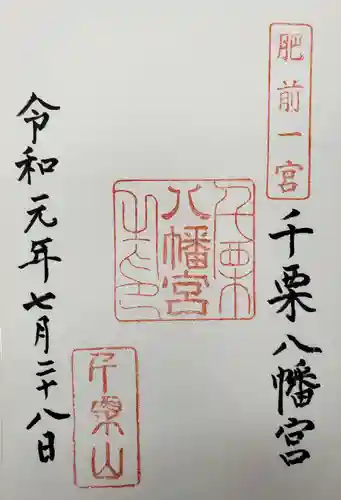 肥前一宮
千栗八幡宮
千栗
八幡宮
令和元年七月二十八日
千栗山